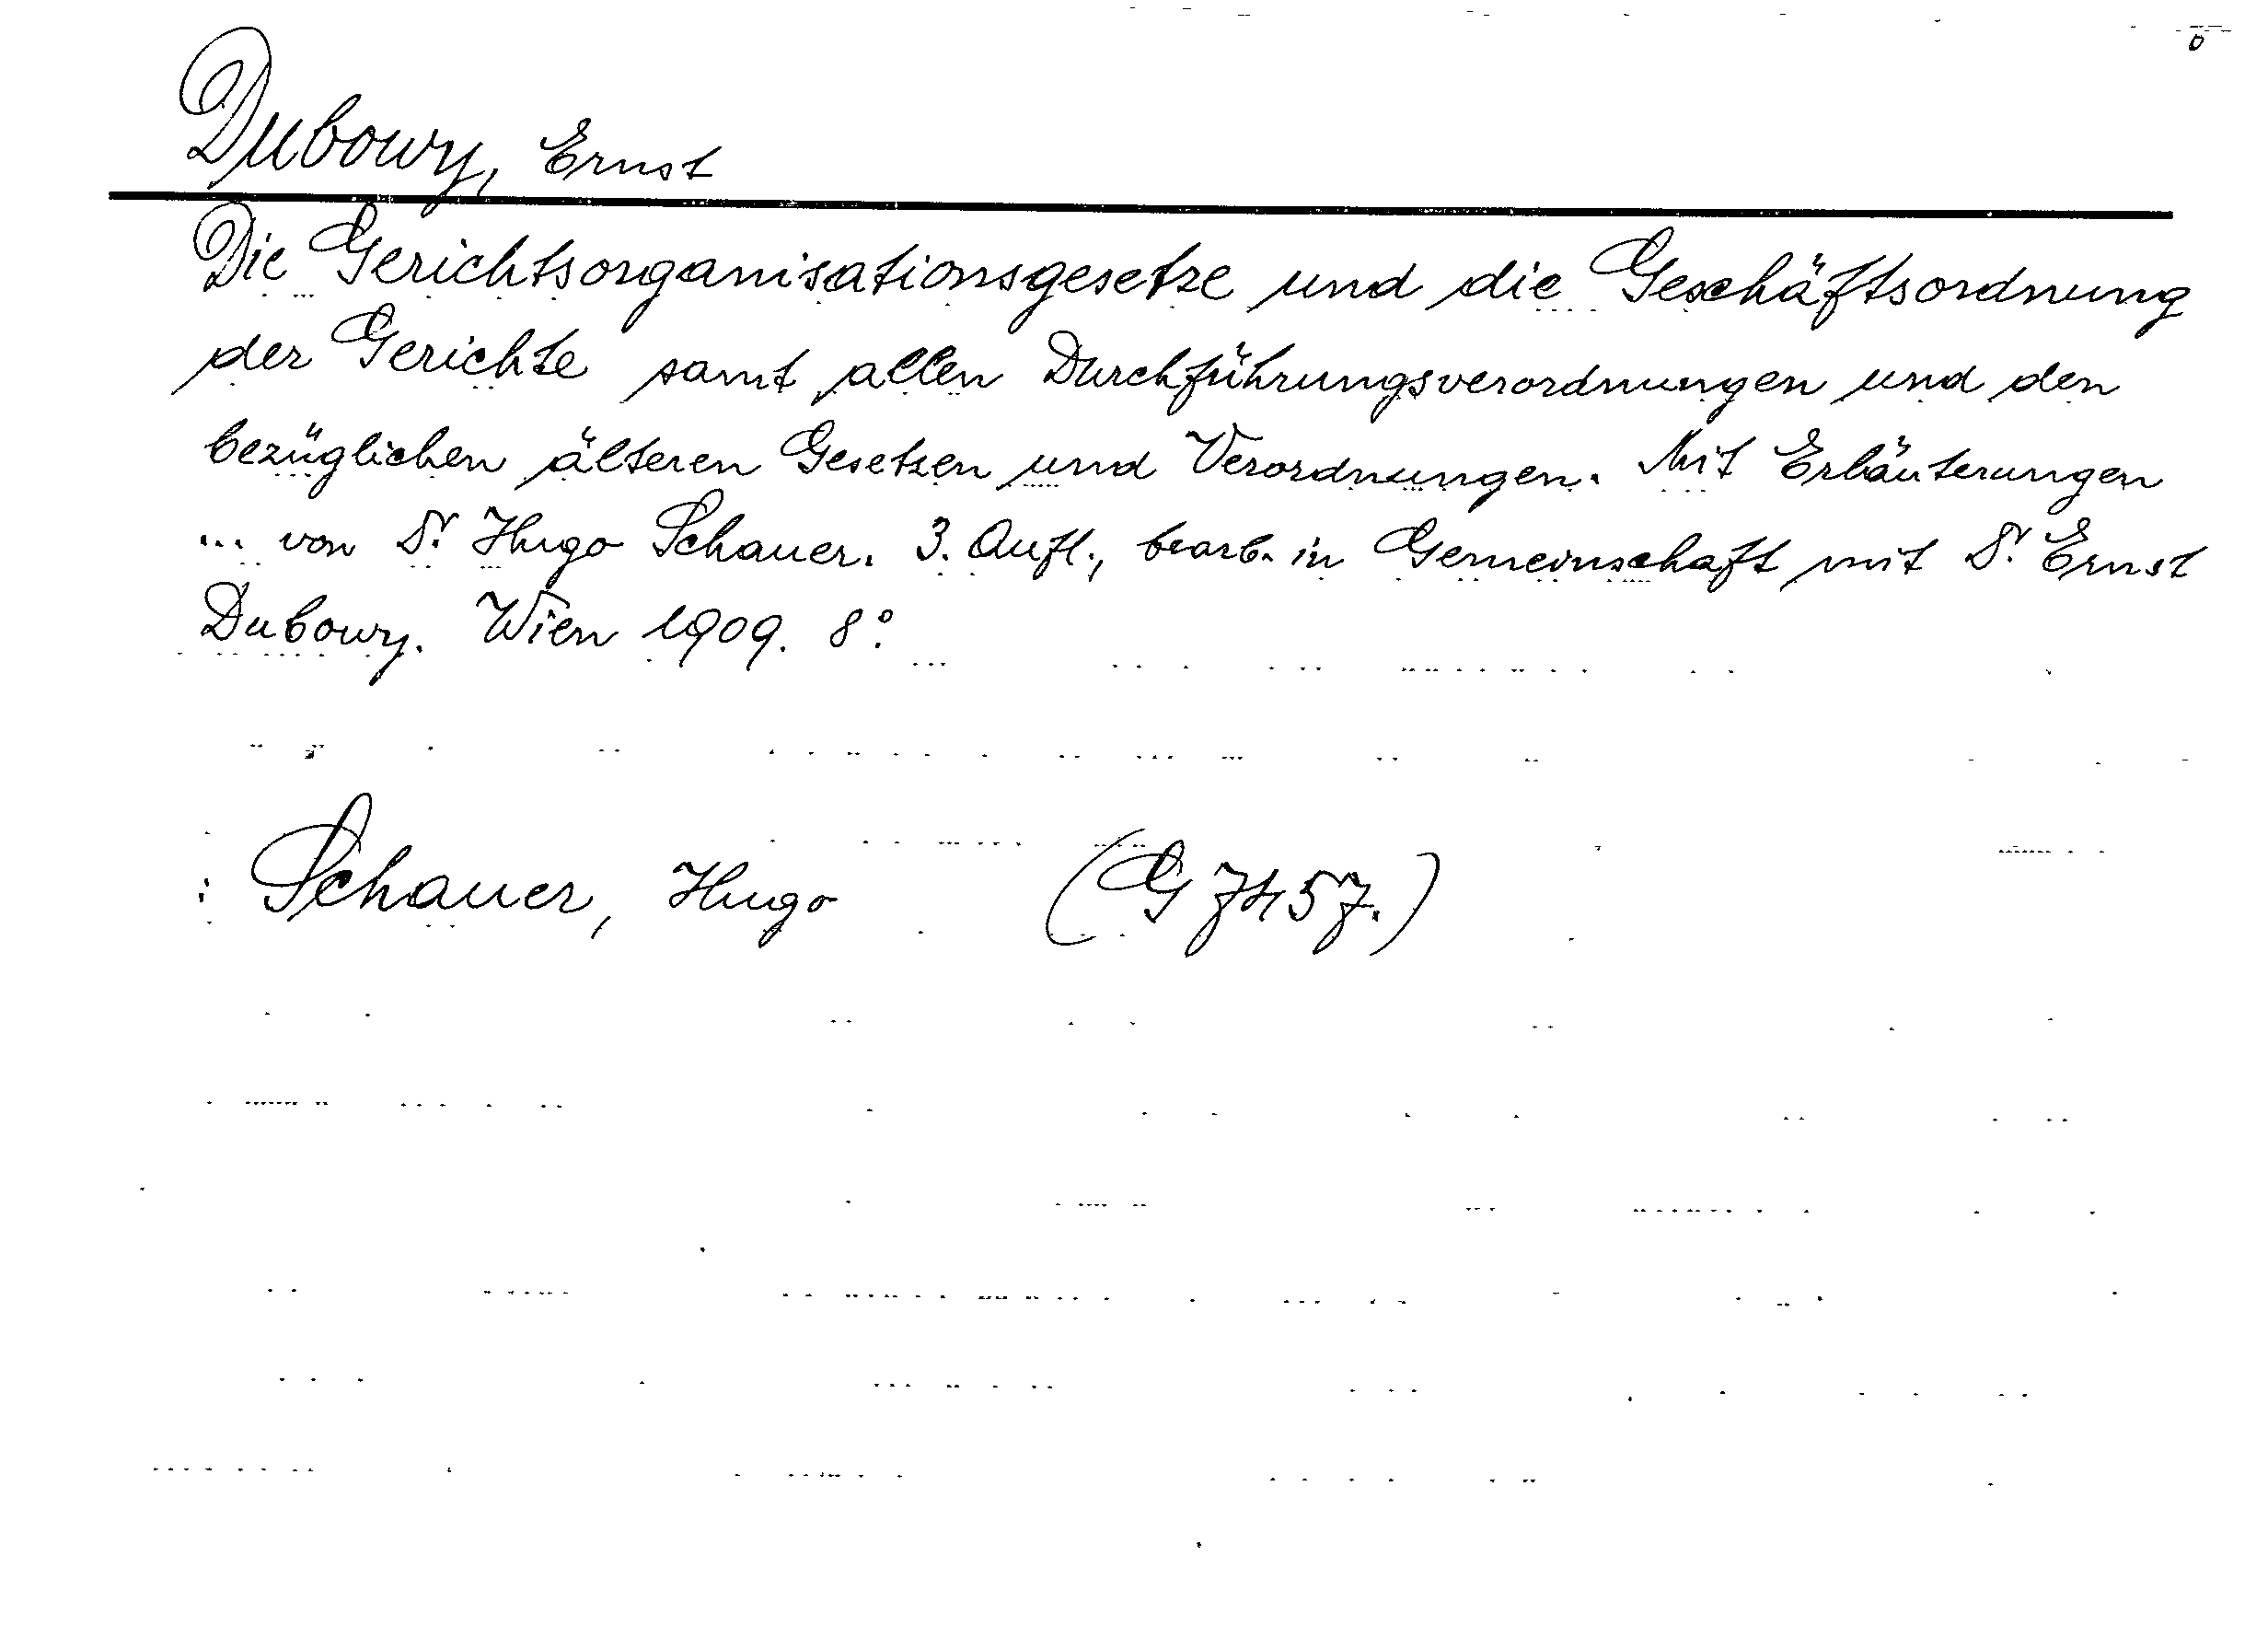 Dubowy, Ernst
Die Gerichtsorganisationsgesetze und die Geschäftsordnung
der Gerichte samt allen Durchführungsverordnungen und den
bezüglichen älteren Gesetzen und Verordnungen. Mit Erläuterungen
... von Dr. Hugo Schauer. 3. Aufl., bearb. in Gemeinschaft mit Dr. Ernst
Dubowy. Wien 1909. 8°.
: Schauer, Hugo (G 7457.)